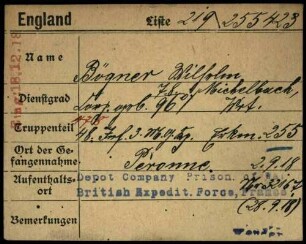 England Liste 219 255423
Eing. 18.12.18
Name
Bögner Wilhelm
Michelbach,
Dienstgrad
967
Truppenteil
48. Inf. 3. M.G.Kp. Erk. 255
Ort der Gefangennahme
Péronne, 2.9.18
Aufenthaltsort
Depot Company Prison. of
British Expedit. Force, France
(28.9.18)
Bemerkungen